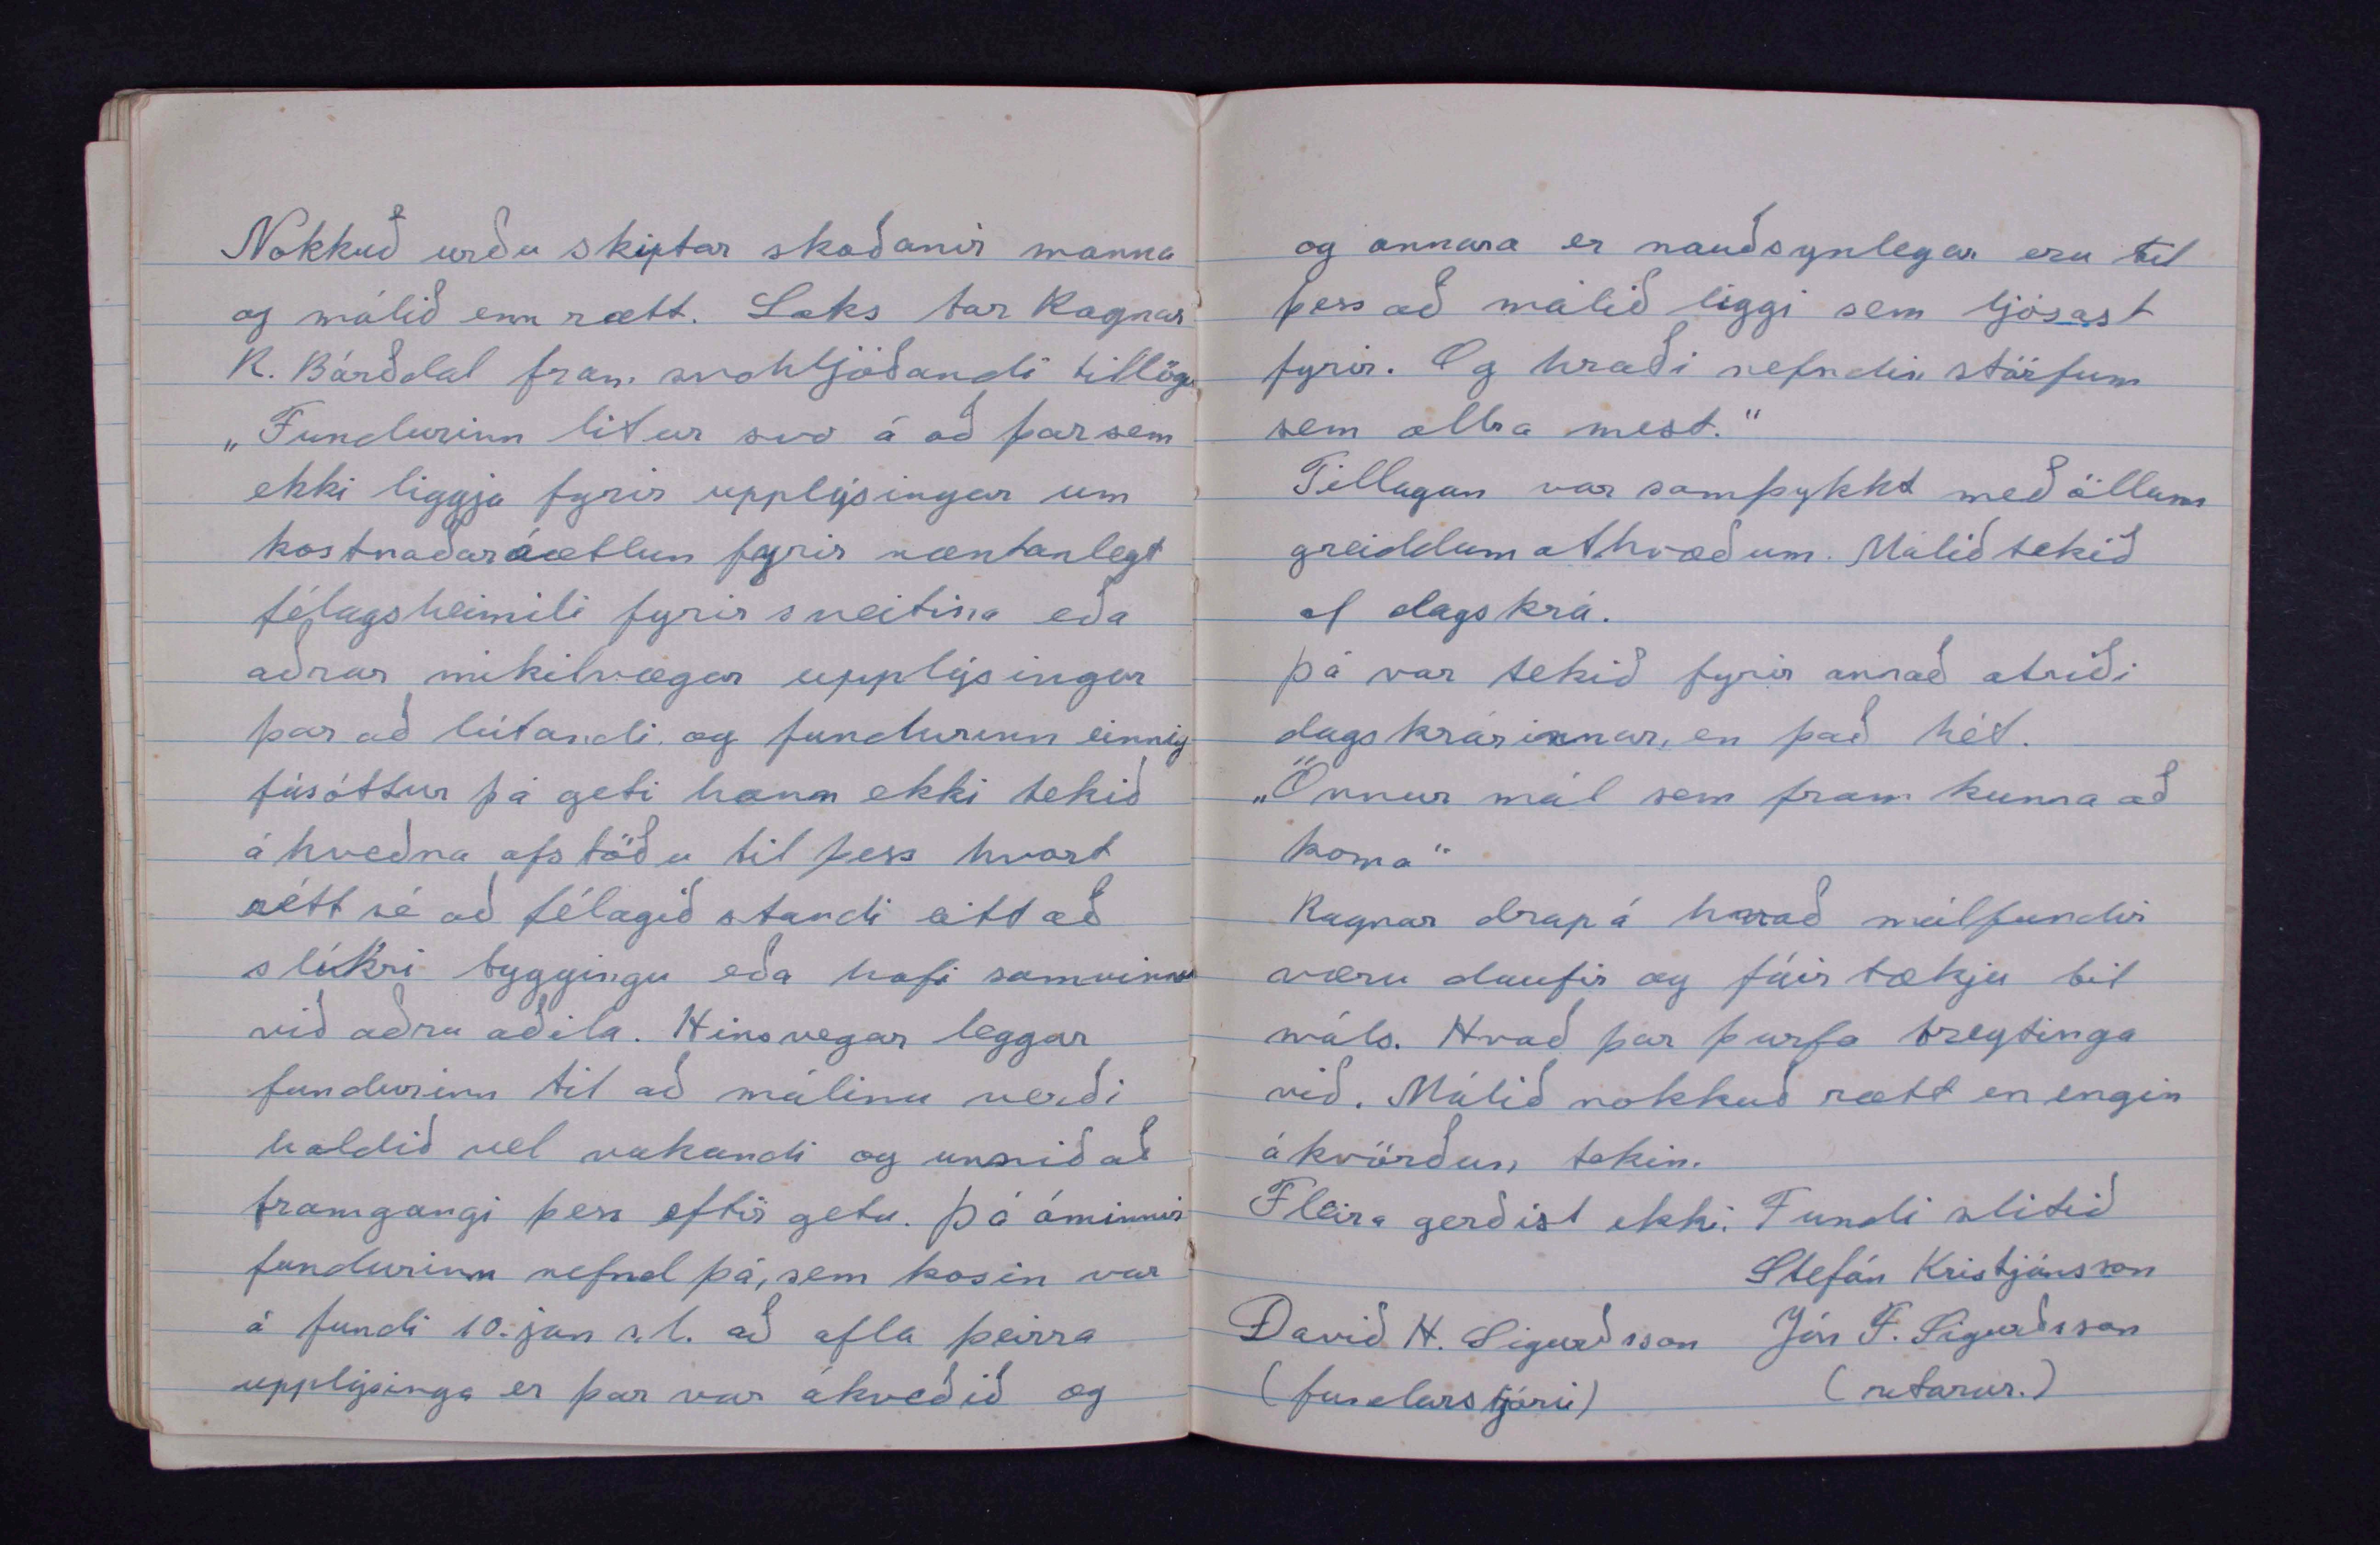 Nokkuð urðu skiptar skoðanir manna
og málið enn rætt. Loks bar Ragnar
R. Bárðdal fram svohljóðandi tillögu
„Fundurinn lítur svo á að þar sem
ekki liggja fyrir upplýsingar um
kostnaðaráætlun fyrir væntanlegt
félagsheimili fyrir sveitina eða
aðrar mikilvægar upplýsingar
þar að lútandi og fundurinn einnig
fásóttur þá geti hann ekki tekið
áhveðna afstöðu til þess hvort
rétt sé að félagið standi eitt að
slíkri byggingu eða hafi samvinnu
við aðra aðila. Hinsvegar leggar
fundurinn til að málinu verði
haldið vel vakandi og unnið að
framgangi þess eftir getu. Þá áminnir
fundurinn nefnd þá, sem kosin var
á fundi 10. jan s.l. að afla þeirra
upplýsinga er þar var ákveðið og
og annara er nauðsynlegar eru til
þess að málið liggi sem ljósast
fyrir. Og hraði nefndin störfum
sem allra mest."
Tillagan var samþykkt með öllum
greiddum athvæðum. Málið tekið
af dagskrá.
Þá var tekið fyrir annað atriði
dagskrárinnar, en það hét.
„Önnur mál sem fram kunna að
koma"
Ragnar drap á hvað málfundir
væru daufir og fáir tækju til
máls. Hvað þar þurfa breytinga
við. Málið nokkuð rætt en engin
ákvörðun tekin.
Fleira gerðist ekki. Fundi slitið
Stefán Kristjánsson
Davið H. Sigurðsson Jón F. Sigurðsson
(fundarstjóri) (ritarar.)